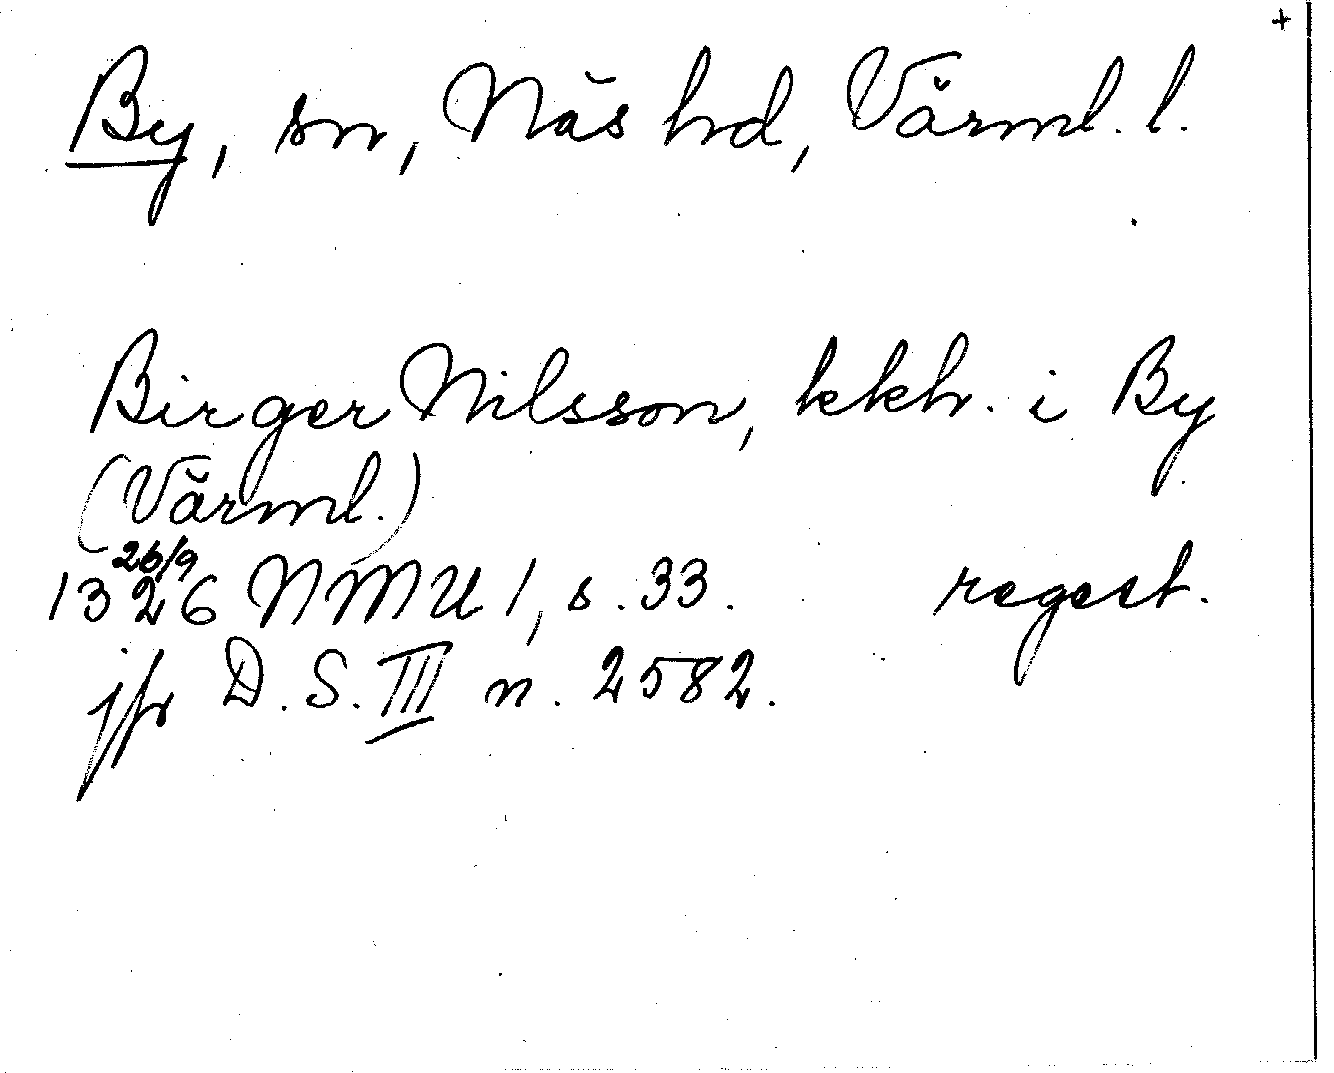 +
By, sn, Näs hd, Värml. l.
Birger Nilsson, kkh. i By
(Värml.)
26/9
1326 NMU 1, s. 33. regest.
jfr D. S. III n. 2582.